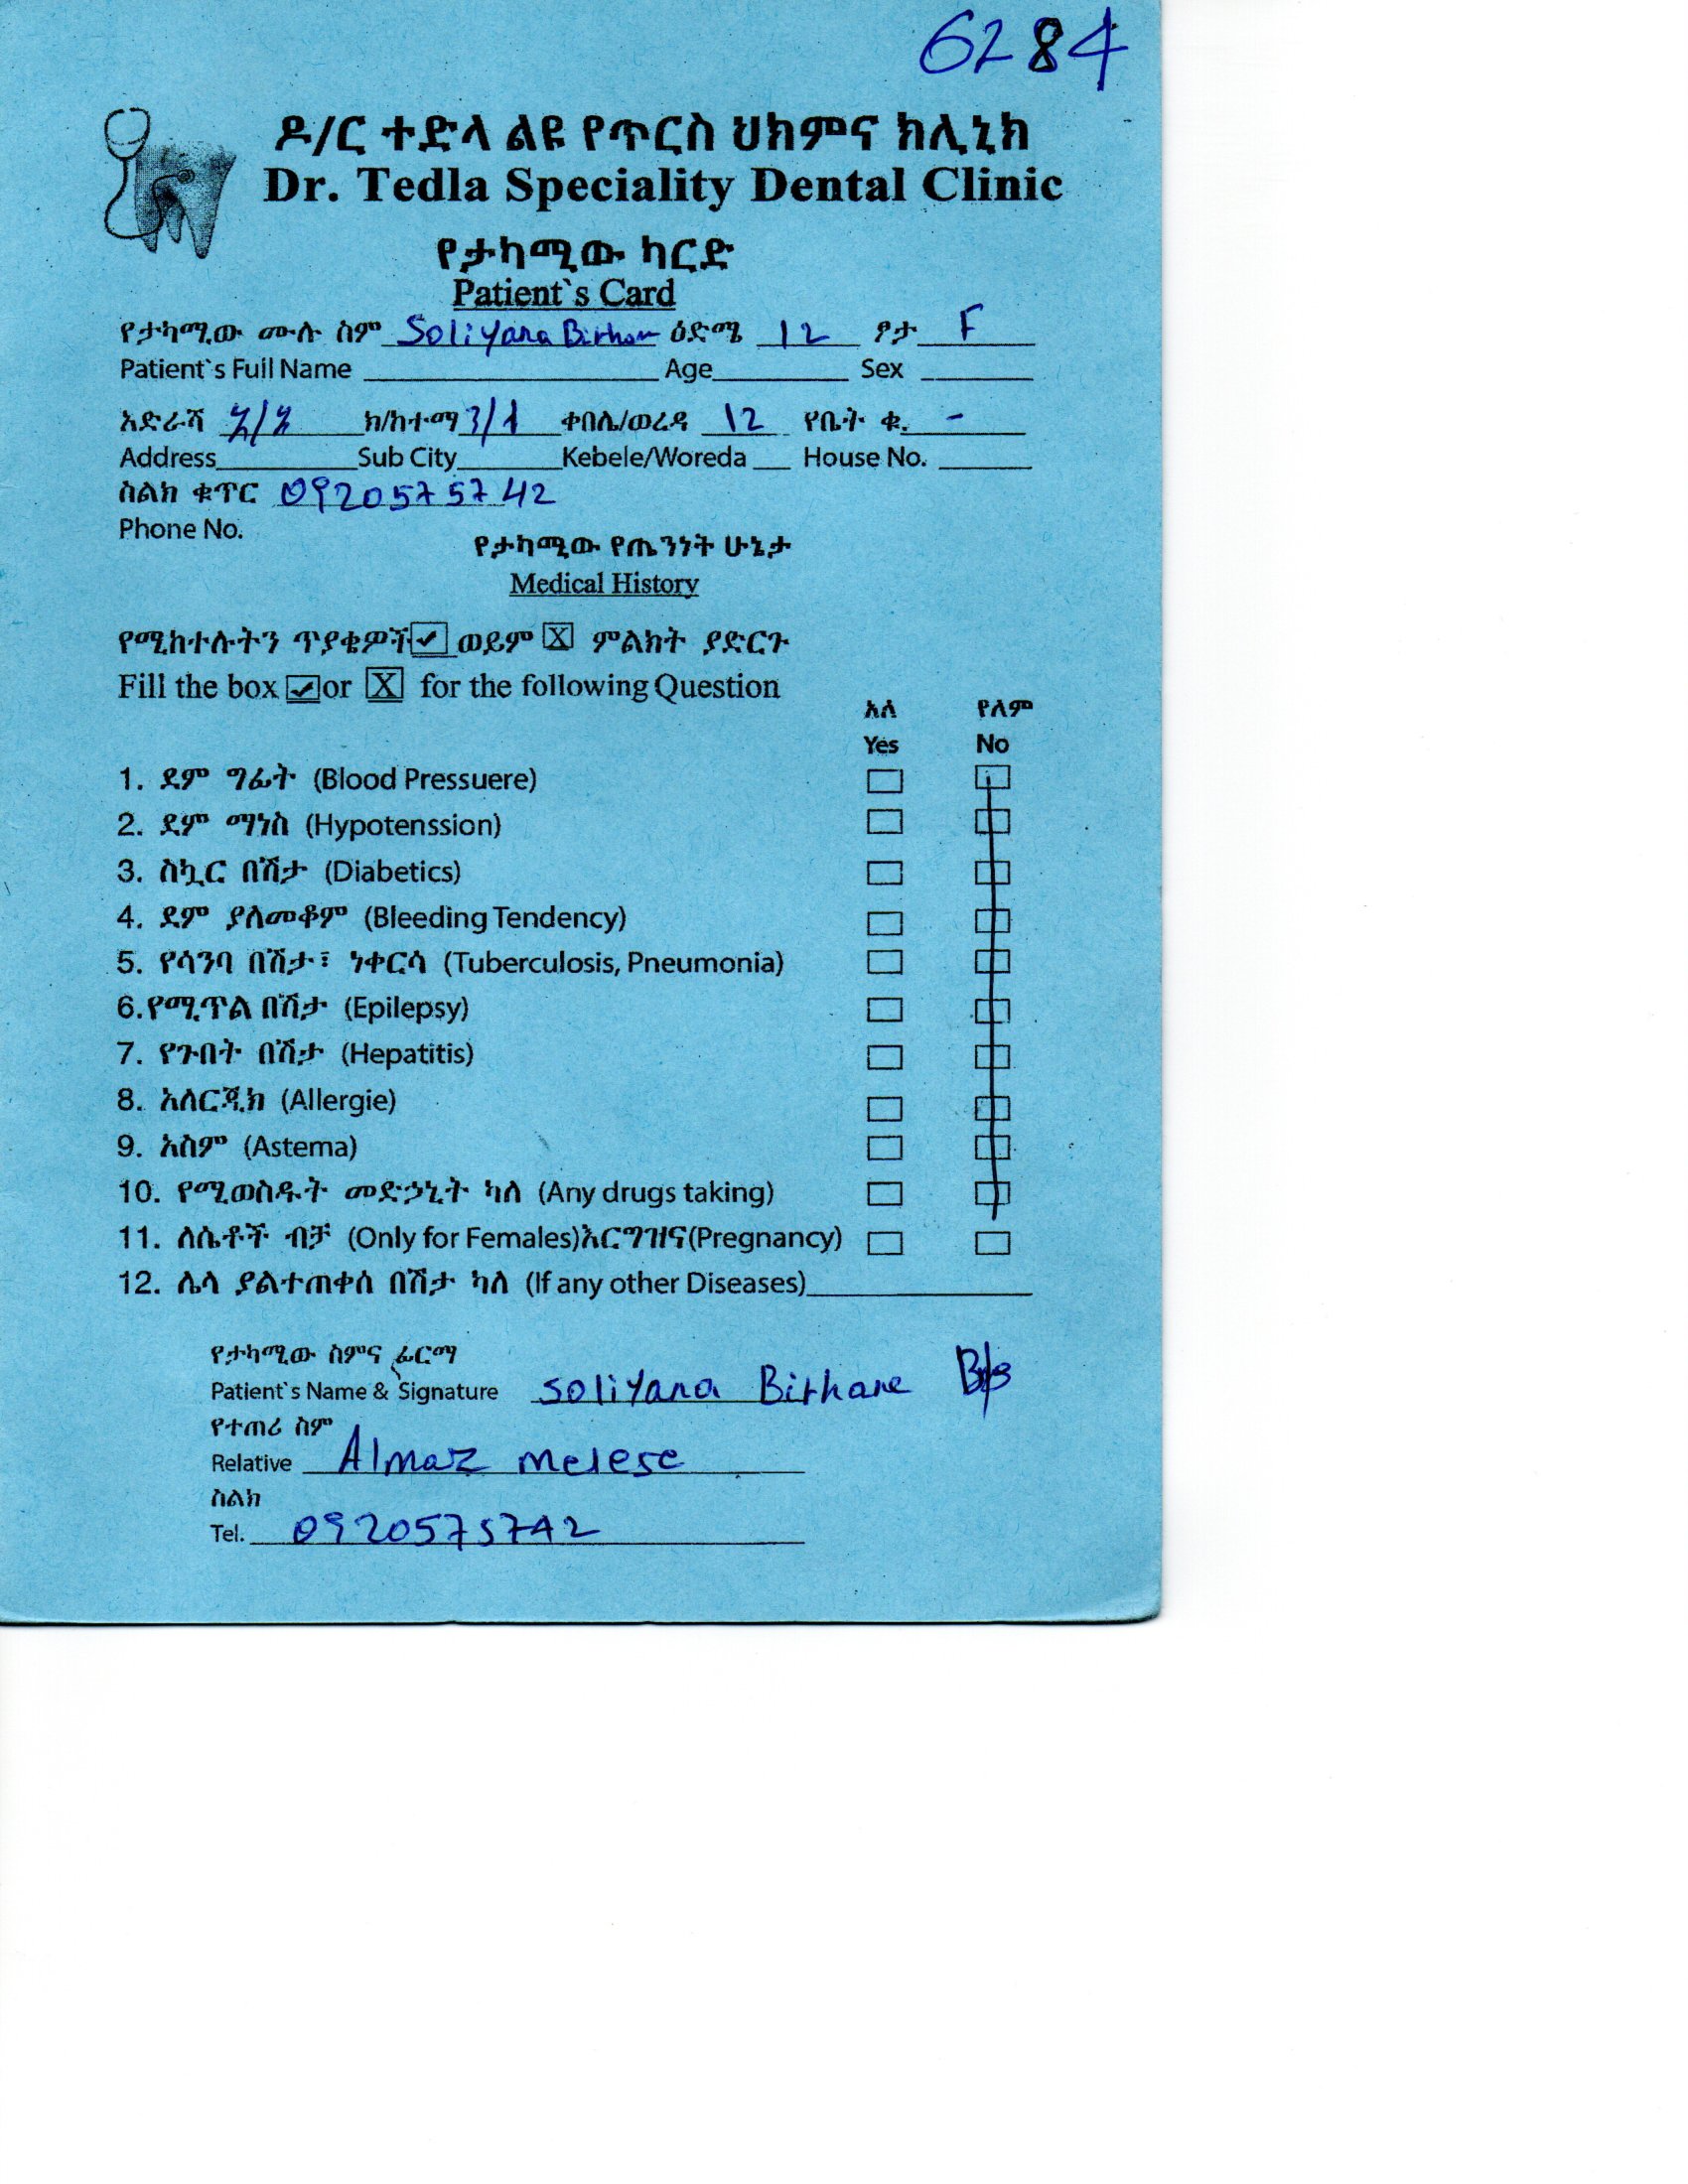 6284
ዶ/ር ተድላ ልዩ የጥርስ ህክምና ክሊኒክ
Dr. Tedla Speciality Dental Clinic
የታካሚው ካርድ
Patient`s Card
የታካሚው ሙሉ ስም Soliyana Birhan ዕድሜ 12 ፆታ F
Patient`s Full Name Age Sex
አድራሻ ክ/ከተማ ቀበሌ/ወረዳ 12 የቤት ቁ. -
Address Sub City Kebele/Woreda House No.
ስልክ ቁጥር 0920575742
Phone No.
የታካሚው የጤንነት ሁኔታ
Medical History
የሚከተሉትን ጥያቄዎች ✓ ወይም X ምልክት ያድርጉ
Fill the box ✓ or X for the following Question
አለ የለም
Yes No
1. ደም ግፊት (Blood Pressuere)
2. ደም ማነስ (Hypotenssion)
3. ስኳር በሽታ (Diabetics)
4. ደም ያለመቆም (Bleeding Tendency)
5. የሳንባ በሽታ፣ ነቀርሳ (Tuberculosis, Pneumonia)
6. የሚጥል በሽታ (Epilepsy)
7. የጉበት በሽታ (Hepatitis)
8. አለርጂክ (Allergie)
9. አስም (Astema)
10. የሚወስዱት መድኃኒት ካለ (Any drugs taking)
11. ለሴቶች ብቻ (Only for Females)እርግዝና(Pregnancy)
12. ሌላ ያልተጠቀሰ በሽታ ካለ (If any other Diseases)
የታካሚው ስምና ፊርማ
Patient`s Name & Signature Soliyana Birhane
የተጠሪ ስም
Relative Almaz melese
ስልክ
Tel. 0920575742